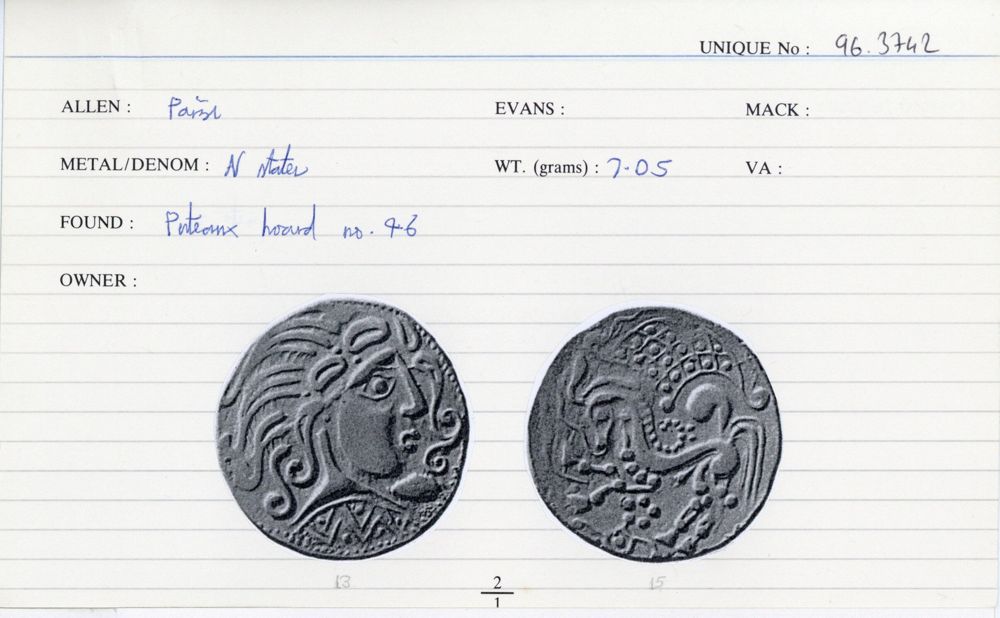 UNIQUE No : 96.3742
ALLEN : Parisi EVANS : MACK :
METAL/DENOM : N stater WT. (grams) : 7.05 VA :
FOUND : Puteaux hoard no. 46
OWNER :
13 2/1 15